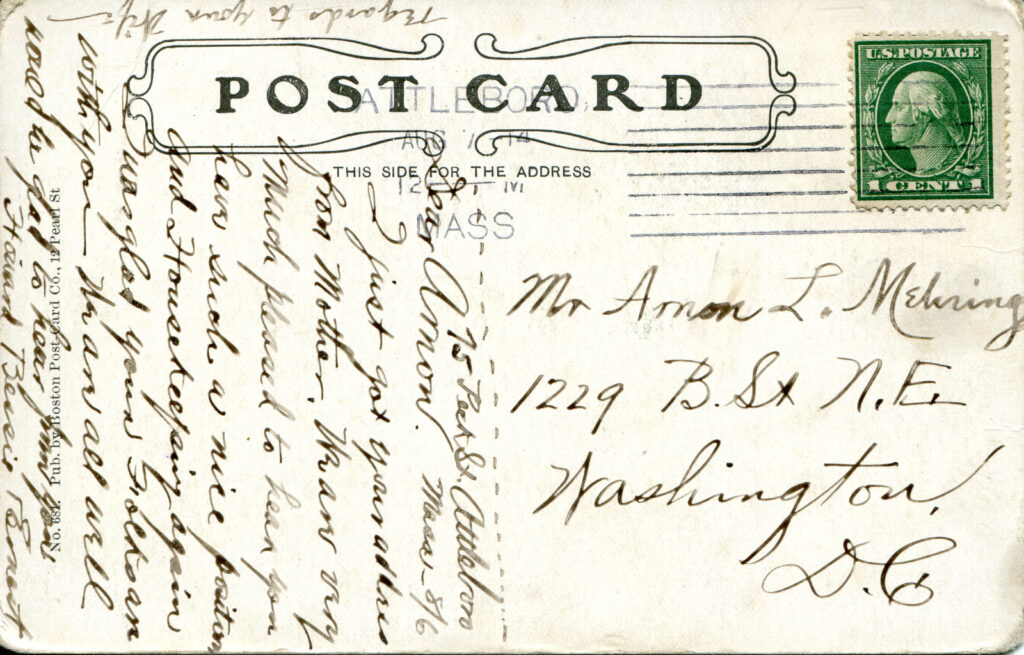 POST CARD
THIS SIDE FOR THE ADDRESS
ATTLEBORO,
AUG 14
12 M
MASS
U.S.POSTAGE
1 CENT 1
Mr Amon L. Mehring
1229 B. St N.E.
Washington,
D.C.
75 St. Attleboro
Dear Amon. Mass
I just got your address
from Mother. Was very
Much pleased to hear you
have such a nice position
and Housekeeping again
was glad your Folks are
with you all well
would be glad to hear from you
Bessie
regards to your Wife
No. 681. Pub. by Boston Post Card Co., 12 Pearl St